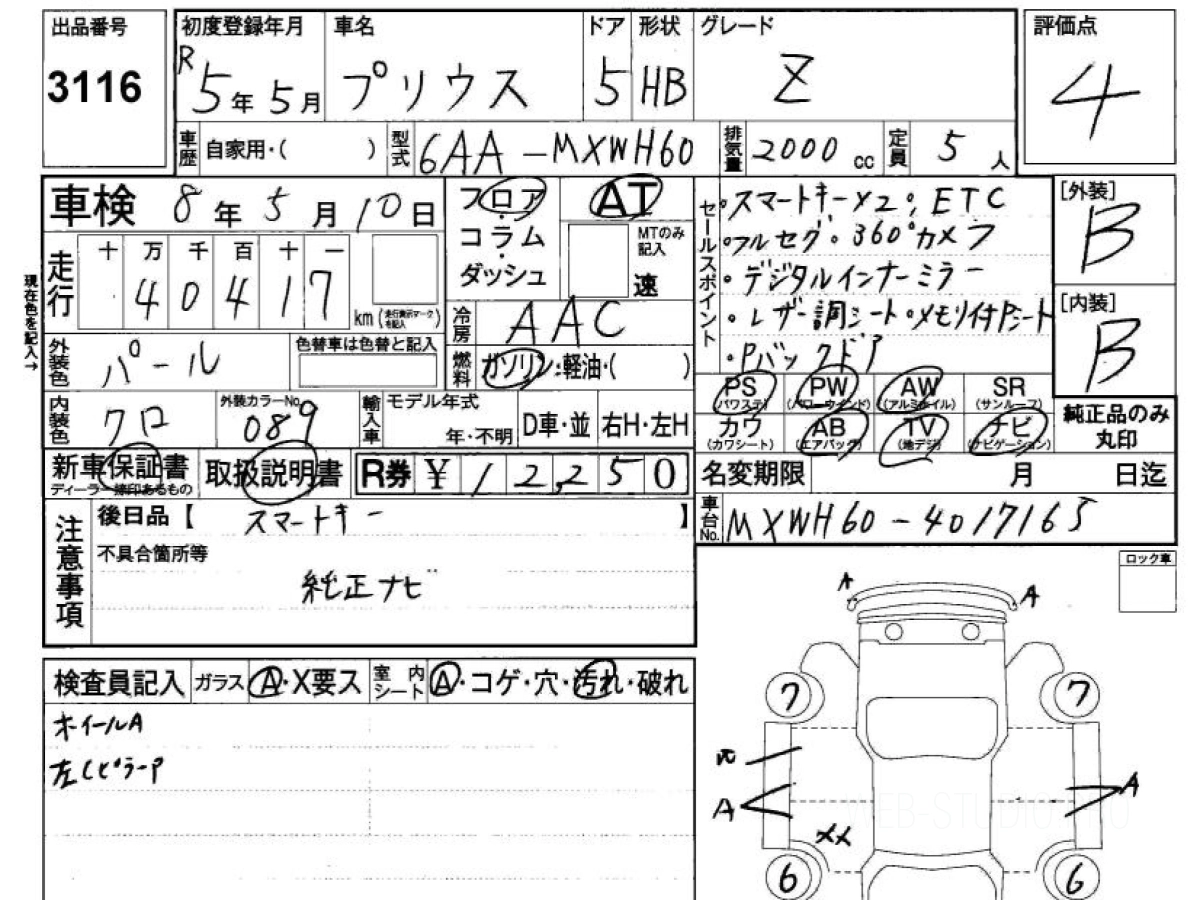 出品番号
3116
初度登録年月
R5年5月
車名
プリウス
ドア
5
形状
HB
グレード
Z
評価点
4
車歴
自家用・( )
型式
6AA-MXWH60
排気量
2000 cc
定員
5 人
車検 8年5月10日
走行
十 万 千 百 十 一
4 0 4 1 7
km (走行表示マークを記入)
現在色を記入→
外装色
パール
色替車は色替と記入
内装色
クロ
外装カラーNo.
089
フロア
コラム
ダッシュ
AT
MTのみ記入
速
冷房
AAC
燃料
ガソリン・軽油・( )
輸入車
モデル年式
年・不明
D車・並
右H・左H
セールスポイント
・スマートキーx2・ETC
・フルセグ・360°カメラ
・デジタルインナーミラー
・レザー調シート・メモリ付Pシート
・Pバックドア
[外装]
B
[内装]
B
PS
(パワステ)
PW
(パワーウインド)
AW
(アルミホイル)
SR
(サンルーフ)
カワ
(カワシート)
AB
(エアバッグ)
TV
(地デジ)
ナビ
(ナビゲーション)
純正品のみ
丸印
新車保証書
ディーラー締印あるもの
取扱説明書
R券 ¥ 12,250
名変期限 月 日迄
車台No.
MXWH60-4017165
注意事項
後日品【 スマートキー 】
不具合箇所等
純正ナビ
ロック車
検査員記入
ガラス
A・X要ス
室内シート
A・コゲ・穴・汚れ・破れ
ホイールA
左Cピラーp
A
A
7
7
A
A
xx
6
6
WEB-STUDIO